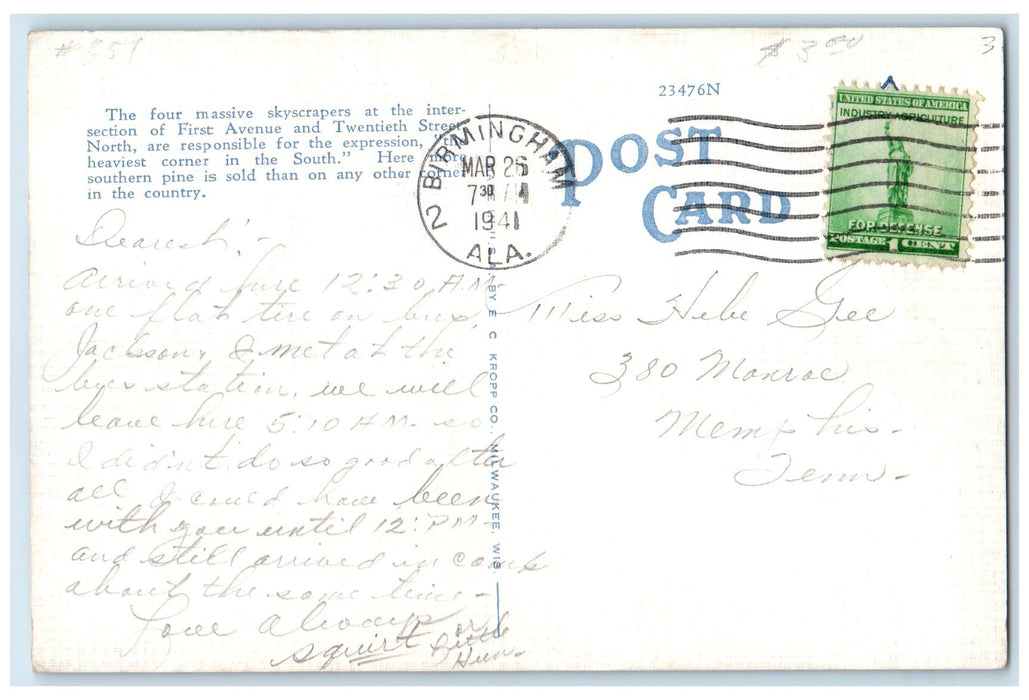 #351
$3.00
3
The four massive skyscrapers at the inter-
section of First Avenue and Twentieth Street
North, are responsible for the expression, "the
heaviest corner in the South." Here more
southern pine is sold than on any other corner
in the country.
23476N
POST
CARD
BIRMINGHAM
MAR 26
7 30
1941
ALA.
2
UNITED STATES OF AMERICA
INDUSTRY AGRICULTURE
FOR DEFENSE
POSTAGE 1 CENT
BY E. C. KROPP CO., MILWAUKEE, WIS.
Dearest:-
Arrived here 12:30 A.M-
one flat tire on bus,
Jackson, & met at the
bus station, we will
leave here 5:10 A.M. so
I didn't do so good after
all I could have been
with you until 12: P.M-
and still arrived in camp
about the same time-
Love Always
squirt or
Little
Hun-
Miss Hebe Gee
380 Monroe
Memphis-
Tenn-